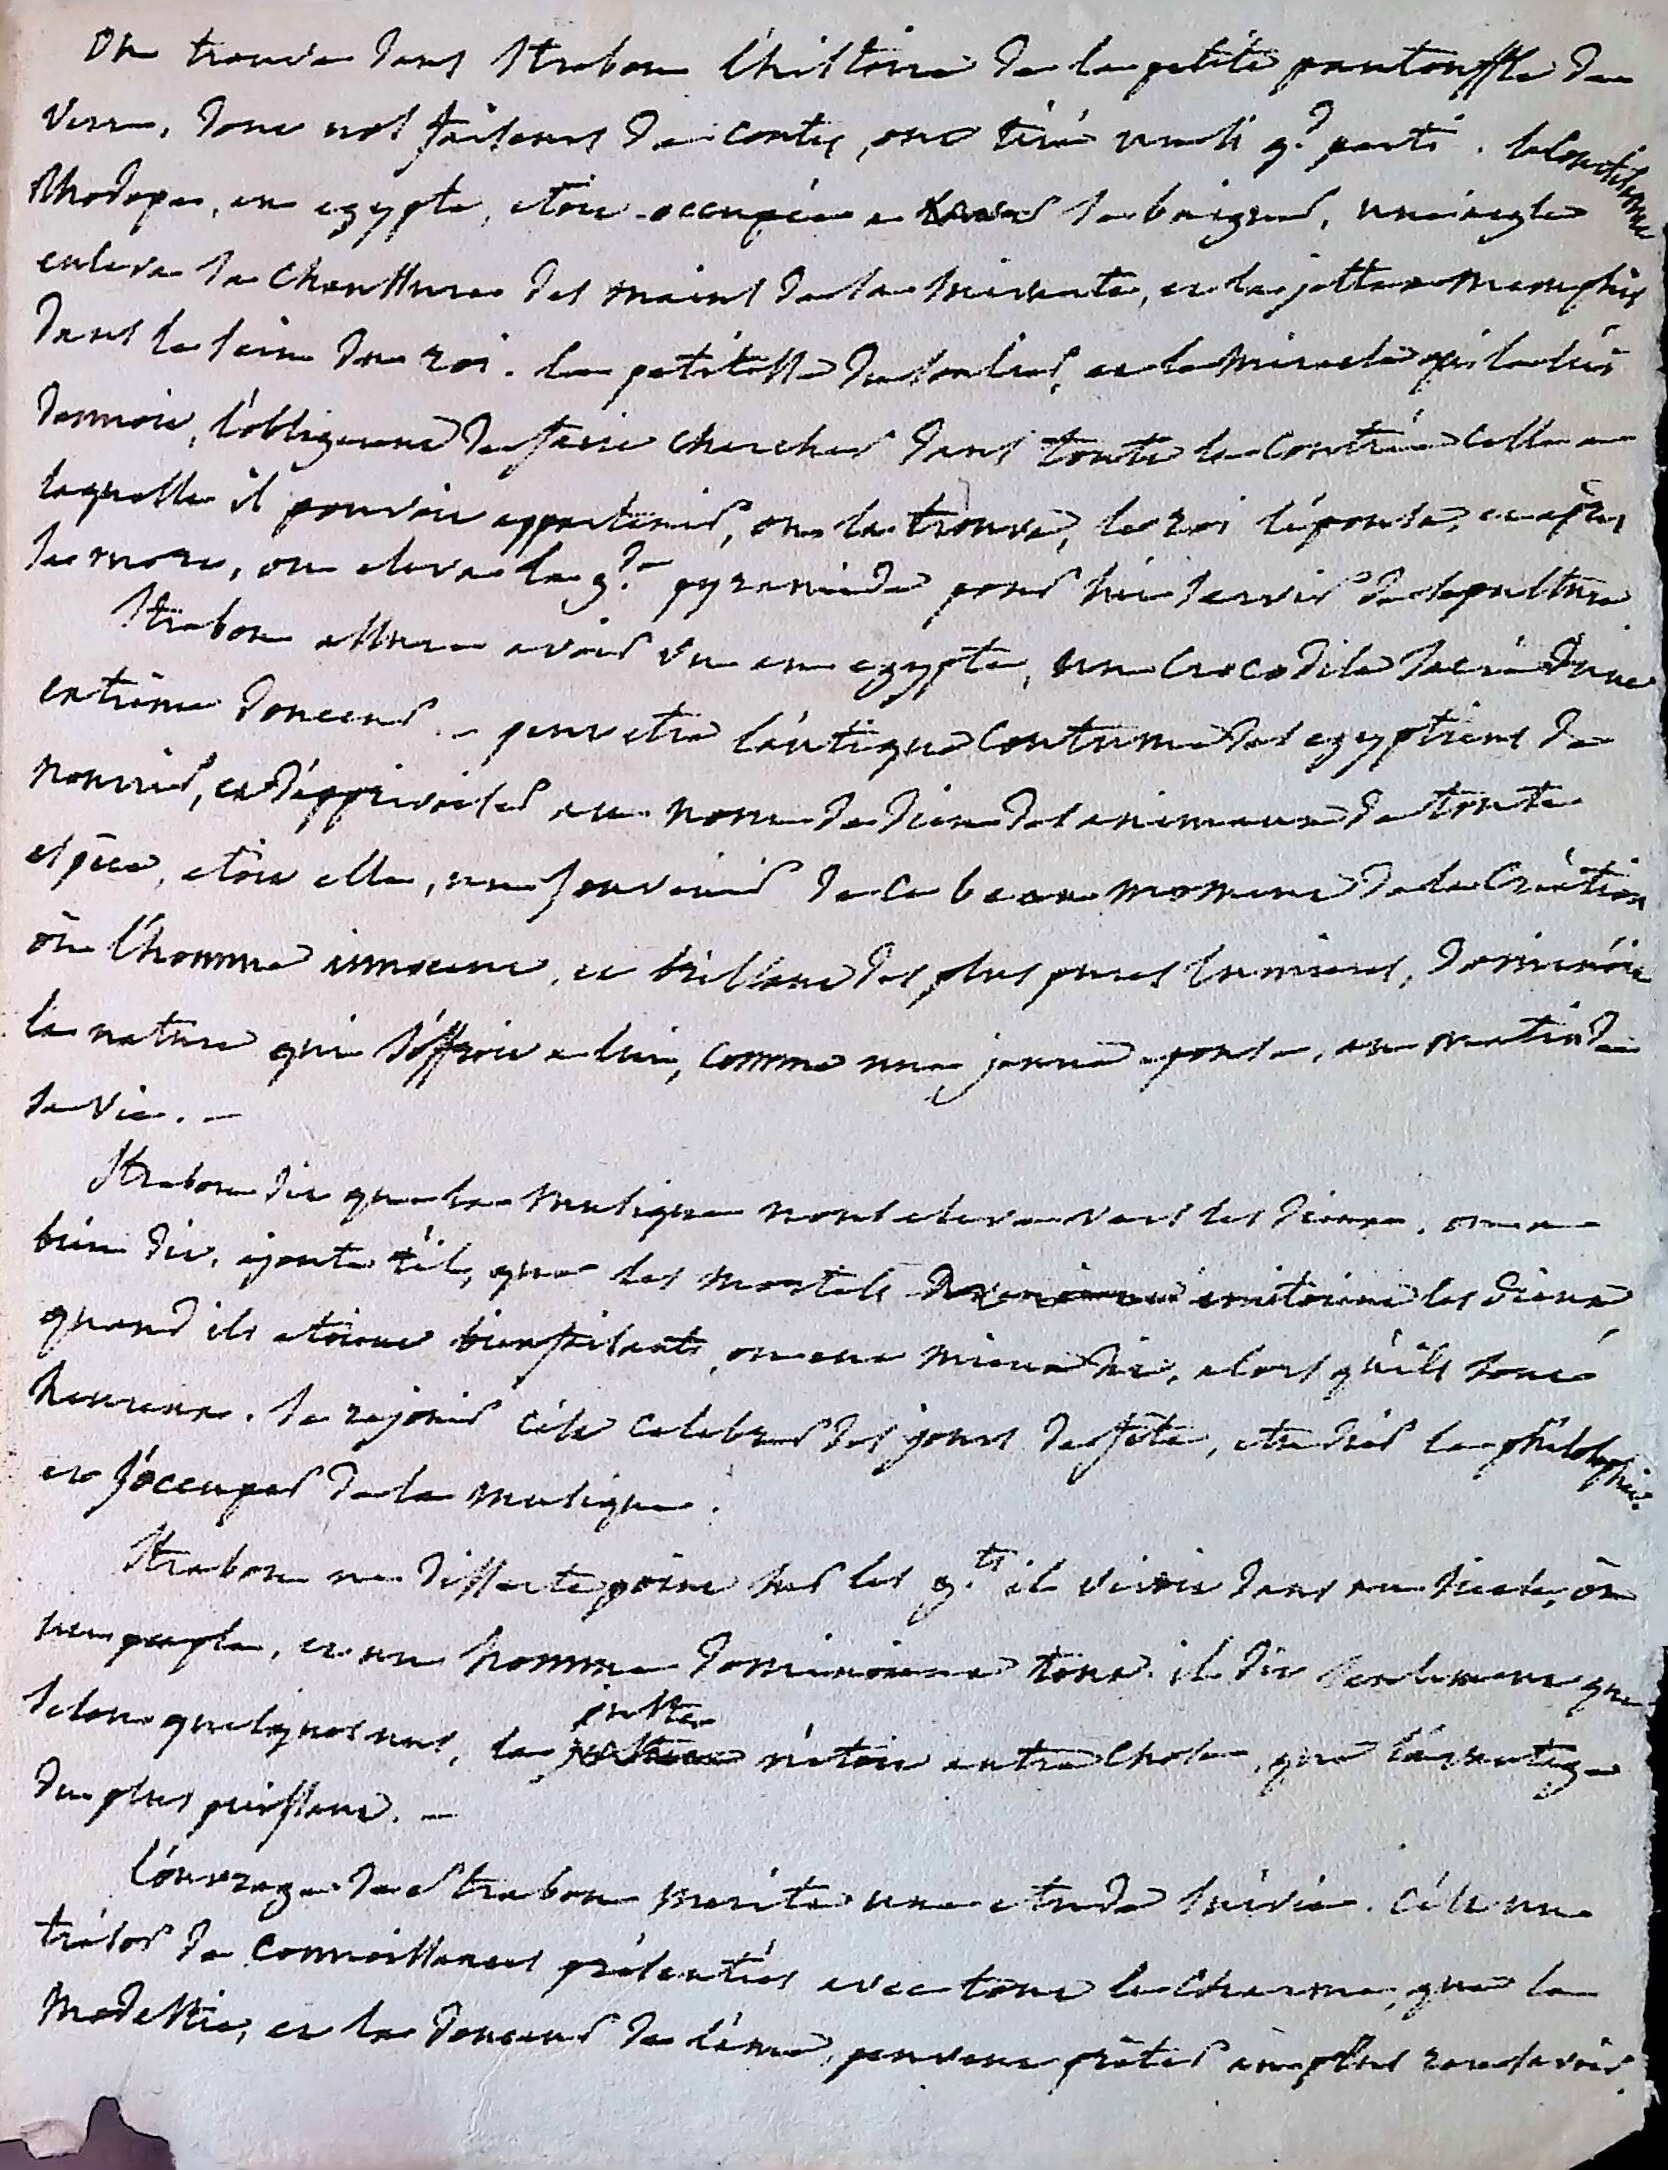 On trouve dans Strabon l'histoire de la petite pantouffle de
verre, donc nos faiseurs de contes, ont tiré un si g.d parti. la courtisanne
Rhodope, en egypte, étoit occupée a se baigner, un aigle
enleva sa chaussure des mains de la suivante, et la jetta a Memphis
dans le sein du roi. la petitesse du soulier, et le miracle qui le lui
donnoit, l'obligerent de faire chercher dans toute la contrée celle a
laquelle il pouvoit appartenir, on la trouva, le roi l'épousa, et après
sa mort, on eleva la g.de pyramide pour lui servir de sepulture.
Strabon assure avoir vu en egypte, un crocodile sacré d'une
extrême douceur. - peut etre l'antique coutume des egyptiens de
nourrir, et d'apprivoiser au nom de dieu des animaux de toute
espèce, étoit elle, un souvenir de ce beau moment de la création
où l'homme innocent, et brillant des plus pures lumieres, dominoit
la nature qui s'offroit a lui, comme une jeune epouse, au matin de
sa vie. -
Strabon dit que la musique nous eleve vers les dieux. on a
bien dit, ajoute t'il, que les mortels imitoient les dieux,
quand ils étoient bienfaisants, on eut mieux dit, alors qu'ils sont
heureux. se rejouir c'est celebrer des jours de fête, etudier la philosophie
et s'occuper de la musique.
Strabon ne disserte point sur les g.ts il vivoit dans un siecle, où
un peuple, et un homme dominoient tout. il dit seulement que
selon quelques uns, le juste n'étoit autre chose, que l'avantage
du plus puissant. -
L'ouvrage de Strabon merite une etude suivie. c'est un
trésor de connoissances présentées avec tout le charme, que la
modestie, et la douceur de l'ame, peuvent prêter au plus rare savoir.